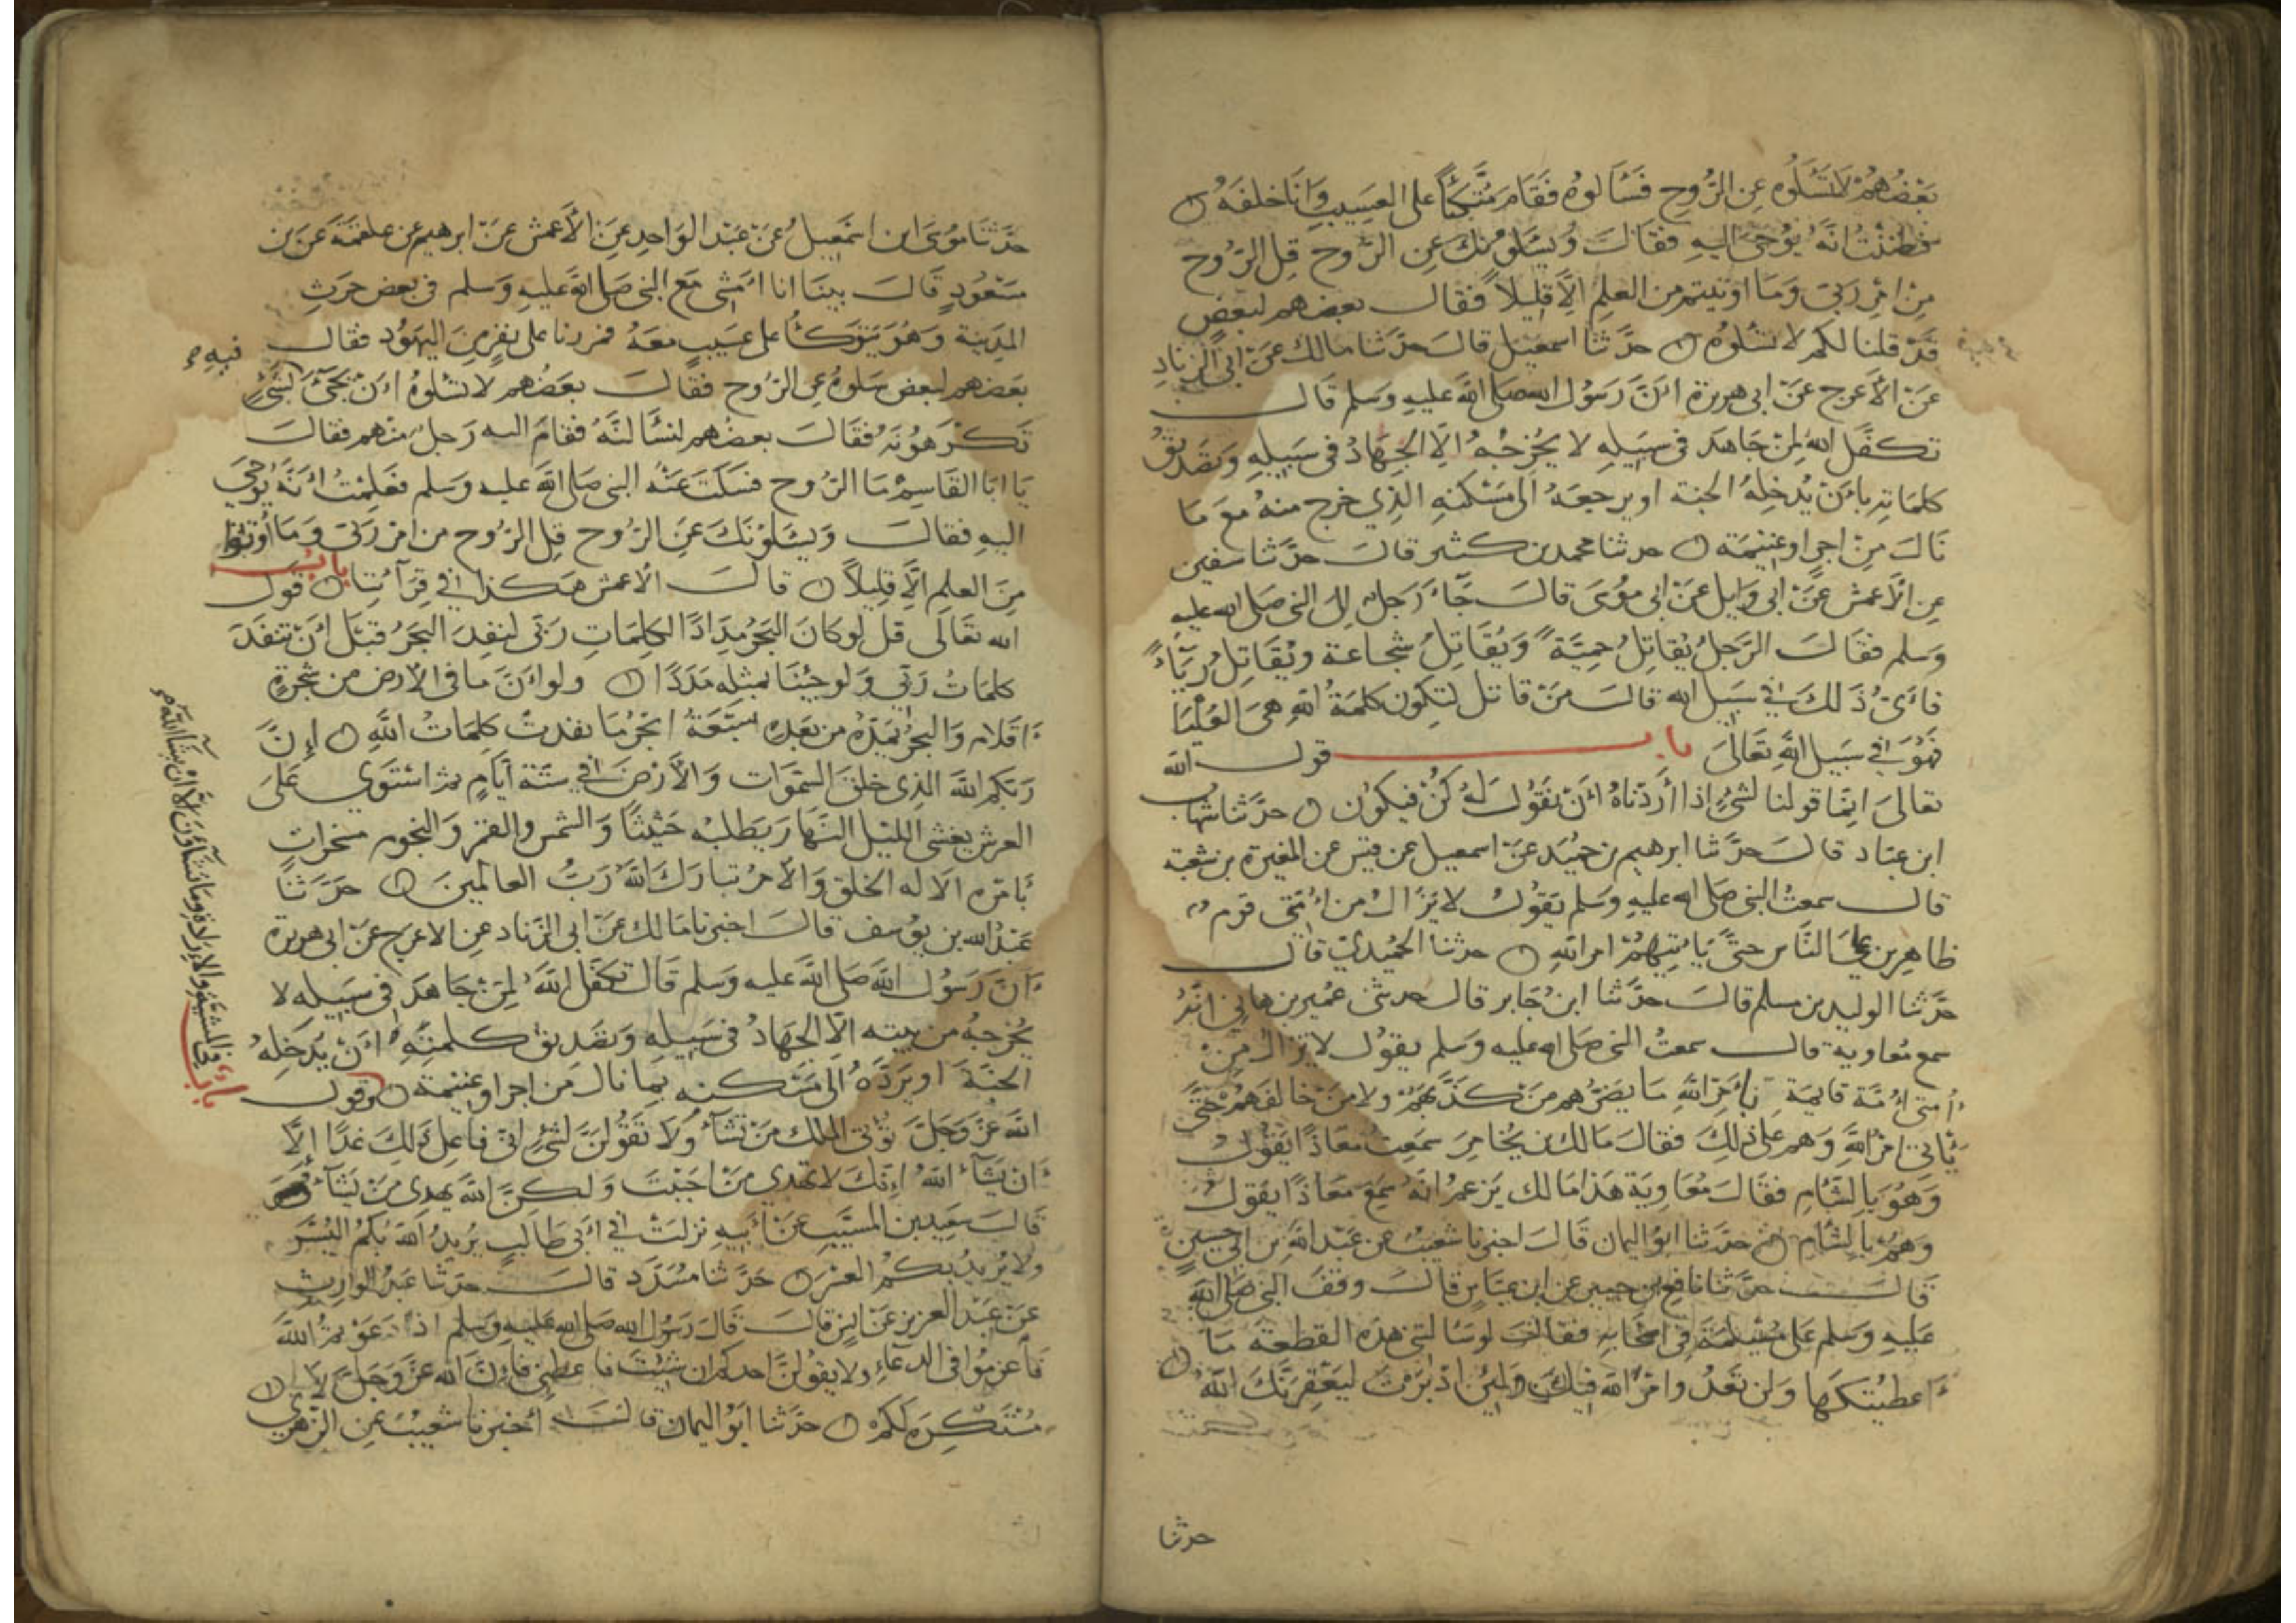 بَعْضُهُمْ لَا تَسْئَلُوه عِن الرُّوح فَسَألوهُ فَقَام مُتَّكِئًا على العَسِيبِ وَانَا خلفَهُ ن
فظننْتُ انّهُ يُوْحَى اليهِ فقالَ وَيسْئلوْنك عِن الرُّوح قِل الرّوح
مِنْ امْرِ رَبّي وَمَا اوتيتم من العلمِ الَّا قليلاً فقال بعضهم لبعضٍ
قَدْ قلنا لكم لا تسْئلوهُ ن حدّثنا اسمعيل قالَ حدّثنا مالك عَنْ ابي الزنادِ
عَنْ الأعرج عَنْ ابي هريرة انَّ رَسُول الله صَلى الله عليهِ وَسَلم قال
تكفّل اللهُ لِمنْ جَاهدَ في سبيلهِ لا يُخْرجُهُ الَّا الجِهَادُ في سبيلهِ وتصْديقُ
كلماتهِ بانْ يُدْخِلهُ الجنة او يرجعهُ الى مَسْكنهِ الذِي خرج منهُ مَعَ مَا
نَالَ مِنْ اجرٍ او غنيمَة ن حدثنا محمد بن كثير قالَ حدّثنا سفين
عن الأعمش عَنْ ابي وَايل عَنْ ابي مُوسَى قالَ جَاءَ رَجل الى النبي صلى الله عليه
وَسَلم فقالَ الرّجلُ يُقاتِلُ حمِيَّةً وَيُقَاتِلُ شجاعة ويُقاتِلُ ريَاءً
فأىّ ذَلكَ في سَبيل الله قالَ مَنْ قاتل لتكون كلمةُ اللهِ هيَ العُلْيَا
فَهُوَ في سَبيل اللهِ تَعَالَى باب قول الله
تعالىَ انّما قولنا لشيْءٍ اذا أرَدْناهُ انْ نقُولَ لهُ كُنْ فيكُون ن حدّثنا شهاب
ابن عبّاد قالَ حدّثنا ابرهيم بن حُمَيد عَنْ اسمعيل عن قيس عن المغيرة بن شعبة
قال سمعتُ النبي صَلى الله عليهِ وَسَلم يَقُولُ لا يزَالُ من امّتي قوم
ظاهرين على النّاس حتّى يَأتيهُمْ امرُ اللهِ ن حدثنا الحُميْديّ قال
حدّثنا الوليد بن مسلم قالَ حدّثنا ابنُ جَابر قال حدثني عُمير بن هاني انّهُ
سمع مُعاوية قال سمعتُ النبي صَلى الله عليه وَسلم يقُول لا تزالُ مِنْ
أمتى أُمّة قايمَة بأَمْرِ اللهِ مَا يضرُّهم مَنْ كذّبَهُمْ ولا مَنْ خَالفهُمْ حَتّى
يَأتى امْرُ اللهِ وَهم على ذلِكَ فقالَ مَالك بن يُخامِرَ سَمِعتُ مُعَاذًا يَقُول
وَهُوَ بالشَّامِ فقَالَ مُعَاوِيَة هَذا مَالك يَزعمُ انّهُ سَمِعَ مُعَاذًا يقول
وَهُمْ بالشّامِ ن حدّثنا ابُو اليمان قَالَ اخبرنا شعيبٌ عن عَبْد الله بن ابي حسينٍ
قال حدّثنا نافع بن جبير عن ابن عبّاس قالَ وقفَ النبي صَلى الله
عَليهِ وَسلم على مُسَيْلمَة في اصْحَابهِ فقال لو سَالتني هَذِه القطعة مَا
اعطيْتكَهَا وَلن تَعْدُ وامْرَ الله فيكَ وَلئِنْ ادْبَرْتَ ليَعْقِرَنّكَ اللهُ ن
حدثنا
حَدَّثنَا مُوسَى ابن اسْمَعِيلُ عَنْ عَبْد الوَاحِدِ عَنِ الأَعمش عَنْ ابرهيم عن علقمَة عَن بن
مَسْعُودٍ قَالَ بينَا انا امْشي مَع النبي صَلى اللهُ عَليهِ وَسلم في بَعض حَرْثِ
المَدِينة وَهُوَ يَتوكّأ على عَسيبٍ معَهُ فمررنا على نفرٍ مِنَ اليَهُود فقال
بعضهم لبعض سَلوهُ عن الرُّوح فقالَ بَعضُهم لا تسْئلوهُ انْ يجَىءَ لشَىْءٍ فيهِ
تكْرَهُونهُ فقَالَ بعضُهم لنسْألنَّهُ فقامَ اليه رَجل منهم فقالَ
يَا ابا القَاسِم مَا الرّوح فسَكتَ عَنْهُ النبي صَلى الله عليه وَسلم فعَلِمْتُ انّهُ يُوحَى
اليهِ فقالَ وَيسْئلوْنَكَ عَنِ الرّوح قلِ الرّوح من امْر رَبّي وَمَا أُوتوا
مِنَ العلم الَّا قليلاً ن قالَ الأعمش هكذا في قِرَآئتِنا ن بابُ قول
الله تعَالَى قل لو كانَ البَحْرُ مِدَادًا لكلمَاتِ رَبّي لنفِدَ البَحَرُ قبْل انْ تنفَدَ
كلمَاتُ رَبّي وَلو جئنا بمثلِهِ مَدَدًا ن ولو انّ مَا في الأرض من شجرةٍ
اقلام وَالبحرُ يمدّهُ من بَعدِهِ سَبْعَةُ ابحُرٍ مَا نفدتْ كلِمَاتُ اللهِ ن إنّ
رَبّكم اللهَ الذِي خلقَ السّمَوَات وَالأرْضَ في ستّة ايّامٍ ثم اسْتَوي عَلىَ
العرش يغشى الليْل النّهَارَ يَطلبهُ حَثيثًا وَالشّمس والقمَرَ وَالنّجومَ مسَخراتٍ
بأمْرِه الا له الخلق وَالأمرُ تبارَكَ اللهُ رَبُّ العالَمينَ ن حَدّثنَا
عَبْدُ الله بن يوُسف قالَ اخبرنا مَالك عَنْ ابي الزّناد عِن الاعرج عَنْ ابي هريرة
انَ رَسُول اللهِ صَلى اللهَ عَليه وَسلم قَال تكفّل اللهُ لمِنْ جَاهدَ في سَبيلهِ لا
يُخرجهُ من بيته الَّا الجهَادُ في سَبيلهِ وَتصْديقُ كلمتِهِ انْ يُدخِلهُ
الجنّةَ او يَرُدّهُ الى مَسْكنهِ بِمَا نالَ مِن اجر او غنيمة ن وقول
اللهَ عَزّ وَجَلّ تُؤتى المُلك مَنْ تشَاءُ وَلَا تَقُولنّ لشَيْءٍ انّي فاعِل ذَلِكَ غدًا الَّا
انْ يَشاءَ اللهُ انّكَ لا تهْدي مَنْ احْبَبْتَ وَلكِنَّ اللهَ يهْدِى مَنْ يَشاءُ
قَالَ سَعِيدُ بن المُسَيّبِ عَنْ أبيهِ نزلتْ في أبي طَالبٍ يُريدُ اللهُ بكُمُ اليُسْرَ
ولا يُريدُ بكمُ العسْرَ ن حَدّثنا مُسَدّد قالَ حدّثنا عَبْدُ الوارِث
عَنْ عَبْد العزيز عَنْ انسٍ قالَ قَالَ رَسُول الله صَلى الله عَليهِ وَسَلم اذا دَعَوْتمُ اللهَ
فأعزِمُوا في الدعَاءِ ولا يقولنّ احدكم ان شِئتَ فاعطِني فاِنّ اللهَ عَزّ وَجَلّ لا
مُسْتكرِهَ لَهُ ن حدّثنا ابو اليمان قالَ أخبَرنا شعَيبٌ عن الزهري
بابٌ في المشيّة والارَادة ومَا تشآؤُن الا انْ يشآ الله